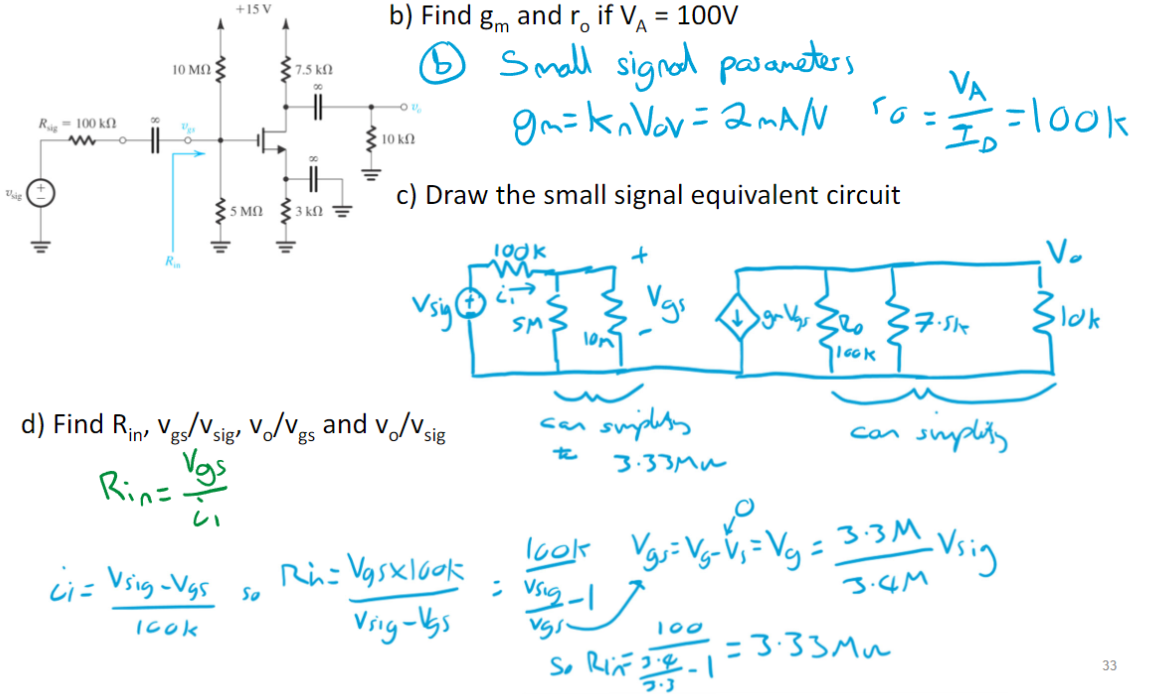 b) Find gm and ro if VA = 100V
+15 V
10 MΩ
7.5 kΩ
∞
Rsig = 100 kΩ
∞
vgs
vo
10 kΩ
∞
vsig
+
−
5 MΩ
3 kΩ
Rin
ⓑ Small signal parameters
gm = knVov = 2mA/V ro = VA/ID = 100k
c) Draw the small signal equivalent circuit
100k
+
Vo
Vsig
+
i1 →
5M
10m
Vgs
-
gmVgs
Ro
100k
7.5k
10k
can simplify
to
3.33MΩ
can simplify
d) Find Rin, vgs/vsig, vo/vgs and vo/vsig
Rin = Vgs/i1
i1 = Vsig - Vgs/100k so Rin = Vgs x 100k/Vsig - Vgs = 100k/Vsig/Vgs - 1
0
Vgs = Vg - Vs = Vg = 3.3M/3.4M Vsig
So Rin = 100/3.4/3.3 - 1 = 3.33MΩ
33